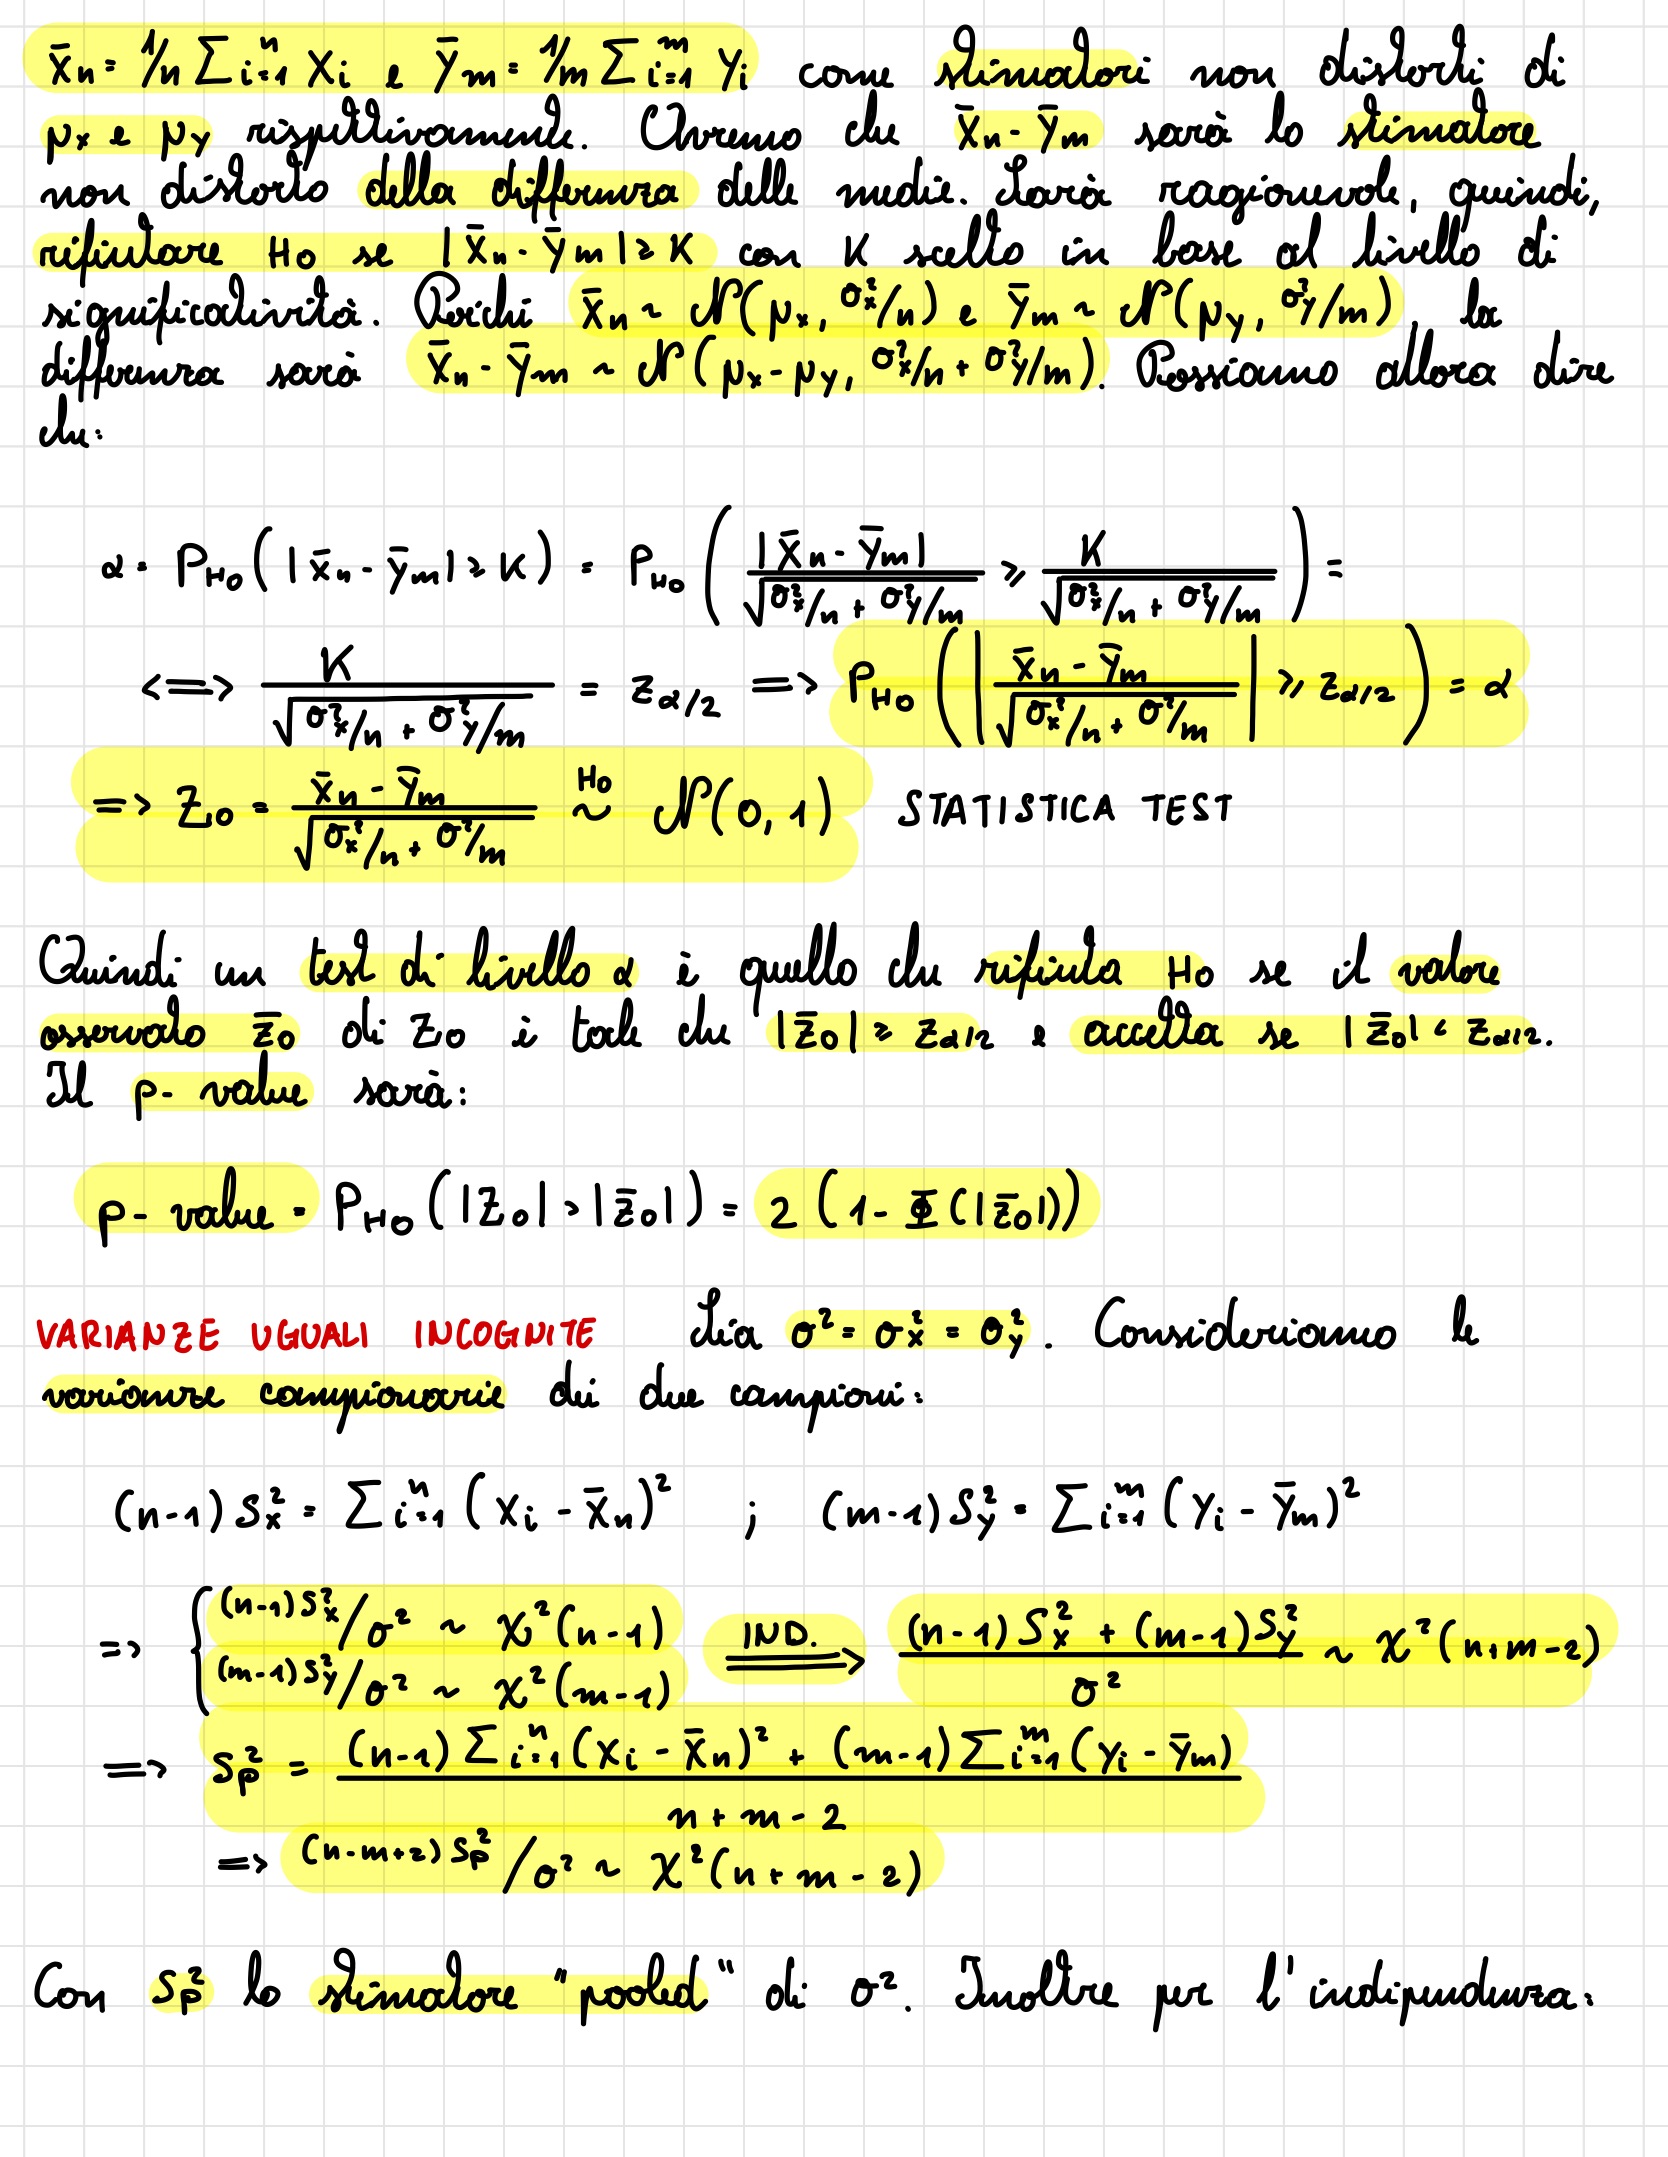 X̄n = 1/n ∑ i=1 n Xi e Ȳm = 1/m ∑ i=1 m Yi come stimatori non distorti di
μx e μy rispettivamente. Avremo che X̄n - Ȳm sarà lo stimatore
non distorto della differenza delle medie. Sarà ragionevole, quindi,
rifiutare H0 se |X̄n - Ȳm| ≥ K con K scelto in base al livello di
significatività. Poiché X̄n ~ N(μx, σ²x/n) e Ȳm ~ N(μy, σ²y/m), la
differenza sarà X̄n - Ȳm ~ N(μx - μy, σ²x/n + σ²y/m). Possiamo allora dire
che:
α = PH0(|X̄n - Ȳm| ≥ K) = PH0( |X̄n - Ȳm| / √(σ²x/n + σ²y/m) ≥ K / √(σ²x/n + σ²y/m) ) =
<=> K / √(σ²x/n + σ²y/m) = zα/2 => PH0( | (X̄n - Ȳm) / √(σ²x/n + σ²/m) | ≥ zα/2 ) = α
=> Z0 = (X̄n - Ȳm) / √(σ²x/n + σ²/m) H0 ~ N(0, 1) STATISTICA TEST
Quindi un test di livello α è quello che rifiuta H0 se il valore
osservato z̄0 di Z0 è tale che |z̄0| ≥ zα/2 e accetta se |z̄0| < zα/2.
Il p-value sarà:
p-value = PH0(|Z0| > |z̄0|) = 2(1 - Φ(|z̄0|))
VARIANZE UGUALI INCOGNITE Sia σ² = σ²x = σ²y. Consideriamo le
varianze campionarie dei due campioni:
(n-1)S²x = ∑ i=1 n (Xi - X̄n)² ; (m-1)S²y = ∑ i=1 m (Yi - Ȳm)²
=> { (n-1)S²x/σ² ~ χ²(n-1)
(m-1)S²y/σ² ~ χ²(m-1) IND. => ((n-1)S²x + (m-1)S²y) / σ² ~ χ²(n+m-2)
=> Sp² = ((n-1) ∑ i=1 n (Xi - X̄n)² + (m-1) ∑ i=1 m (Yi - Ȳm)) / n + m - 2
=> (n-m+2)Sp²/σ² ~ χ²(n+m-2)
Con Sp² lo stimatore "pooled" di σ². Inoltre per l'indipendenza: